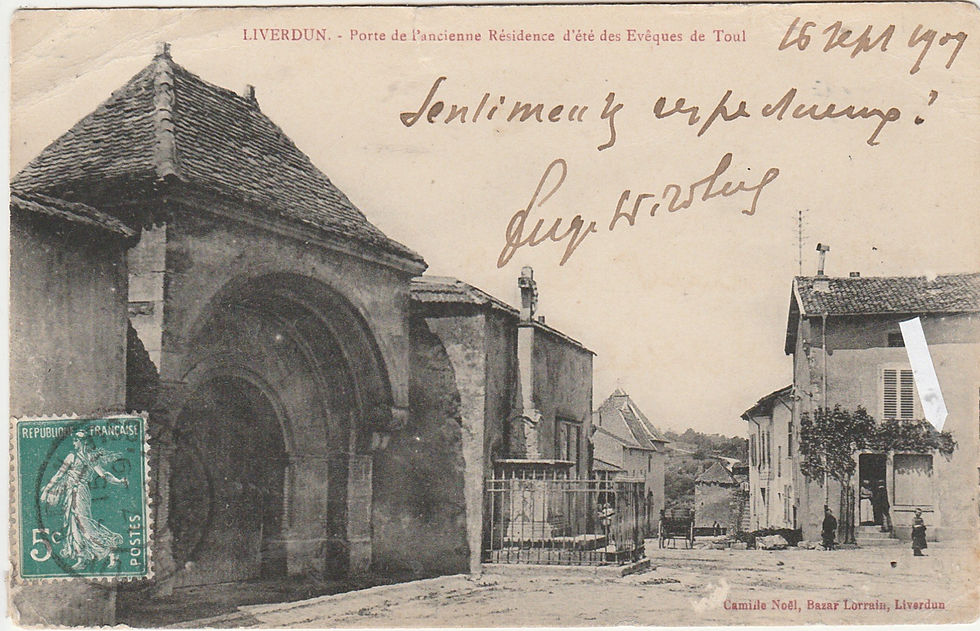 LIVERDUN. - Porte de l'ancienne Résidence d'été des Evêques de Toul
16 Sept 1909
Sentiments respectueux ?
RÉPUBLIQUE FRANÇAISE
5c
POSTES
Camille Noël, Bazar Lorrain, Liverdun